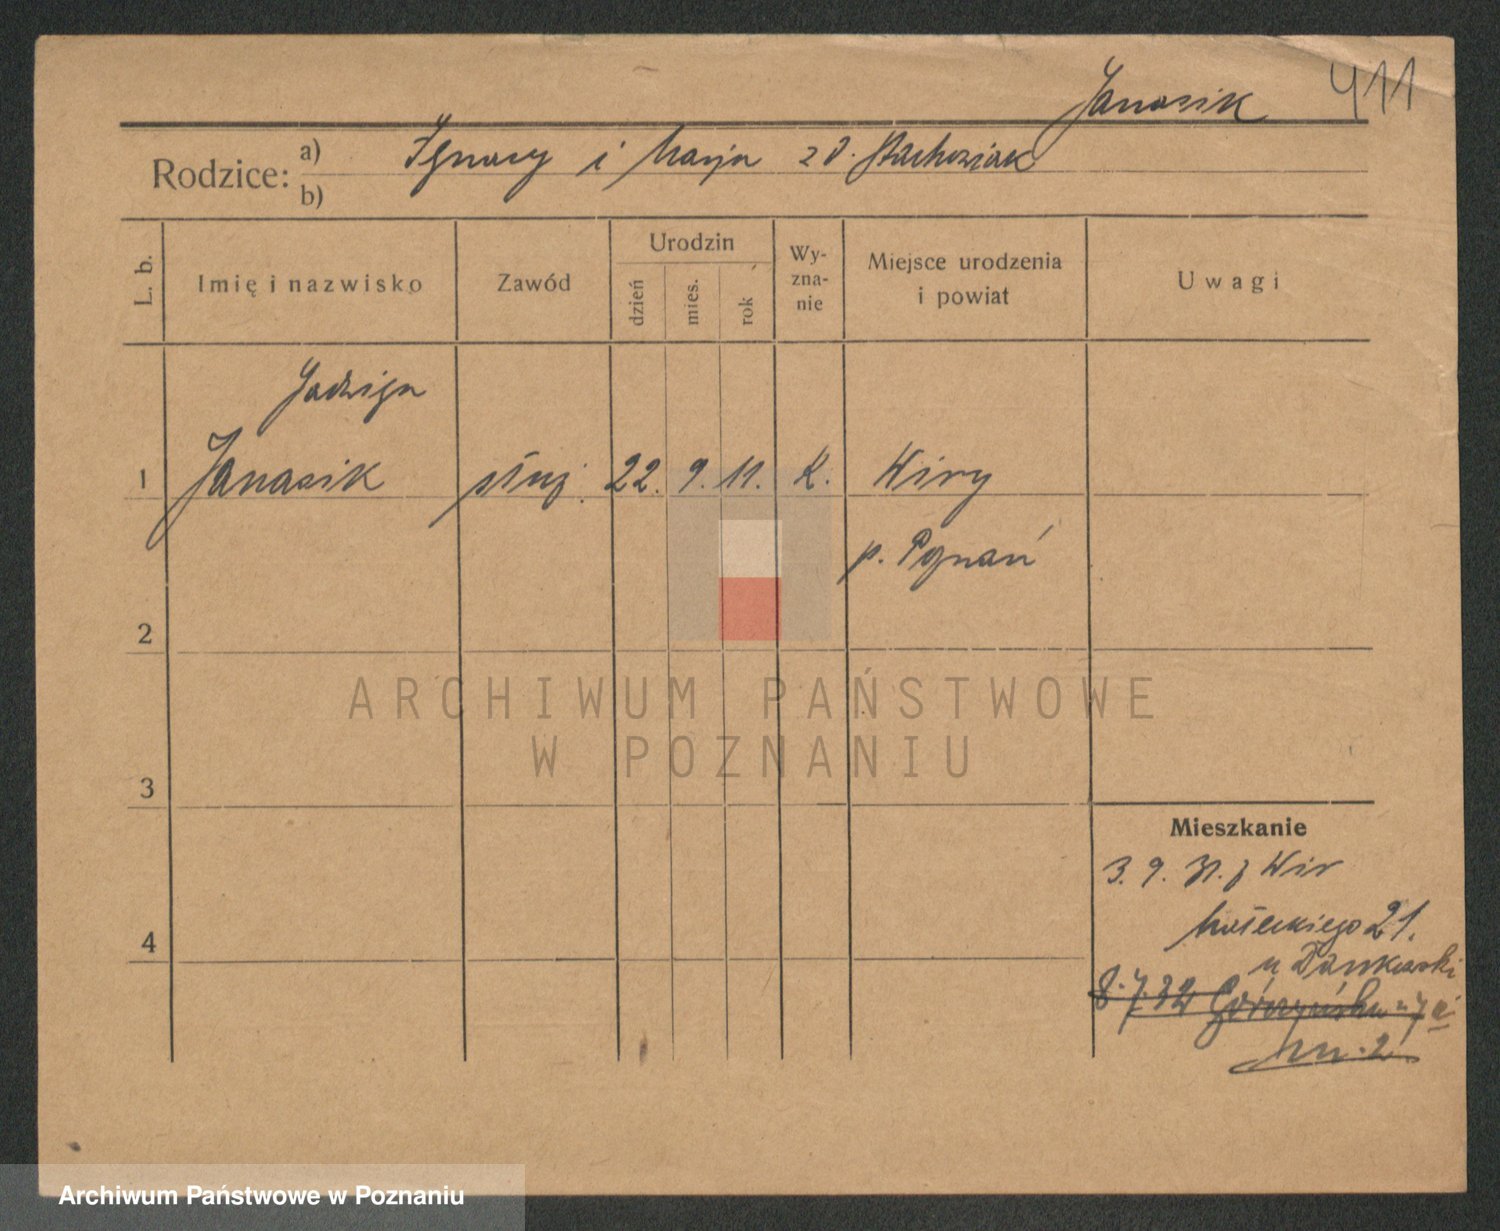 Janasik 411
Rodzice: a) Ignacy i Marja z d. Stachowiak
b)
L. b. Imię i nazwisko Zawód Urodzin dzień mies. rok Wy-zna-nie Miejsce urodzenia i powiat Uwagi
Jadwiga
1 Janasik służ. 22. 9. 11. K. Wiry
p. Poznań
2
ARCHIWUM PAŃSTWOWE
W POZNANIU
3
Mieszkanie
3. 9. 31. z Wir
Małeckiego 21.
4
u Dankowski
8.7.32 Górczyńska 7a
m. 2
Archiwum Państwowe w Poznaniu